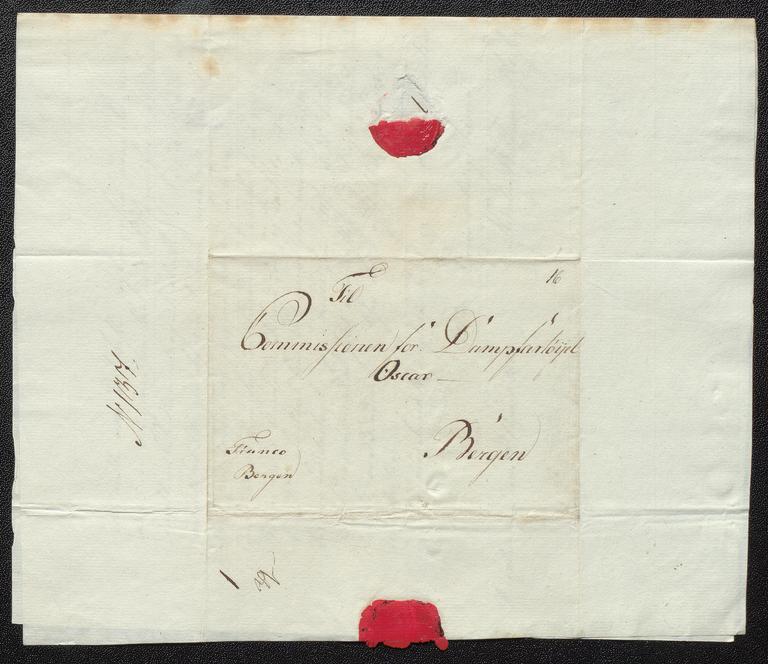 16
Til
Commissionen for Dampfartöijet
Oscar
Bergen
Franco
Bergen